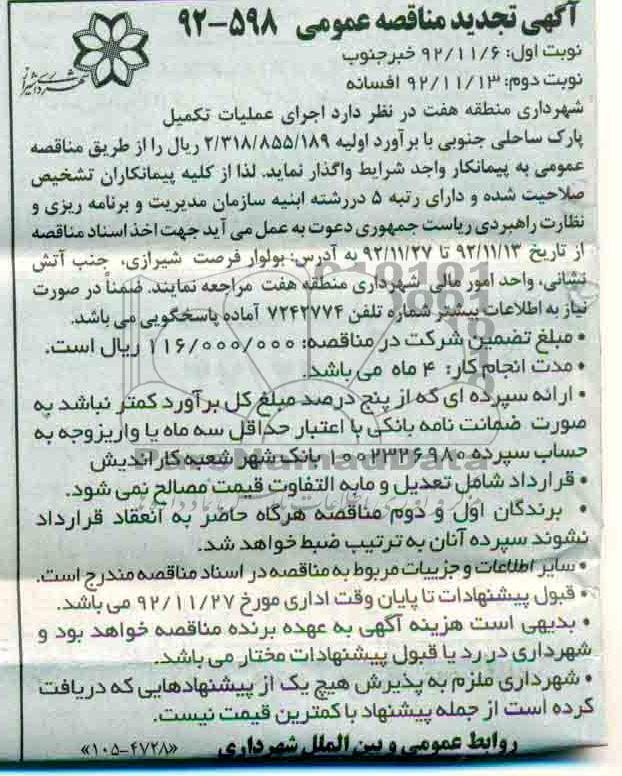 آگهی تجدید مناقصه عمومی ۵۹۸-۹۲
نوبت اول: ۹۲/۱۱/۶ خبرجنوب
نوبت دوم: ۹۲/۱۱/۱۳ افسانه
شهرداری شیراز
شهرداری منطقه هفت در نظر دارد اجرای عملیات تکمیل
پارک ساحلی جنوبی با برآورد اولیه ۲/۳۱۸/۸۵۵/۱۸۹ ریال را از طریق مناقصه
عمومی به پیمانکار واجد شرایط واگذار نماید. لذا از کلیه پیمانکاران تشخیص
صلاحیت شده و دارای رتبه ۵ دررشته ابنیه سازمان مدیریت و برنامه ریزی و
نظارت راهبردی ریاست جمهوری دعوت به عمل می آید جهت اخذ اسناد مناقصه
از تاریخ ۹۲/۱۱/۱۳ تا ۹۲/۱۱/۲۷ به آدرس: بولوار فرصت شیرازی، جنب آتش
نشانی، واحد امور مالی شهرداری منطقه هفت مراجعه نمایند. ضمناً در صورت
نیاز به اطلاعات بیشتر شماره تلفن ۷۲۴۲۷۷۴ آماده پاسخگویی می باشد.
• مبلغ تضمین شرکت در مناقصه: ۱۱۶/۰۰۰/۰۰۰ ریال است.
• مدت انجام کار: ۴ ماه می باشد.
• ارائه سپرده ای که از پنج درصد مبلغ کل برآورد کمتر نباشد به
صورت ضمانت نامه بانکی با اعتبار حداقل سه ماه یا واریزوجه به
حساب سپرده ۱۰۰۲۳۲۶۹۸۰ بانک شهر شعبه کاراندیش
ParsNamadData
• قرارداد شامل تعدیل و مابه التفاوت قیمت مصالح نمی شود.
• برندگان اول و دوم مناقصه هرگاه حاضر به انعقاد قرارداد
نشوند سپرده آنان به ترتیب ضبط خواهد شد.
• سایر اطلاعات و جزییات مربوط به مناقصه در اسناد مناقصه مندرج است.
• قبول پیشنهادات تا پایان وقت اداری مورخ ۹۲/۱۱/۲۷ می باشد.
• بدیهی است هزینه آگهی به عهده برنده مناقصه خواهد بود و
شهرداری در رد یا قبول پیشنهادات مختار می باشد.
• شهرداری ملزم به پذیرش هیچ یک از پیشنهادهایی که دریافت
کرده است از جمله پیشنهاد با کمترین قیمت نیست.
روابط عمومی و بین الملل شهرداری «۴۷۲۸-۱۰۵»